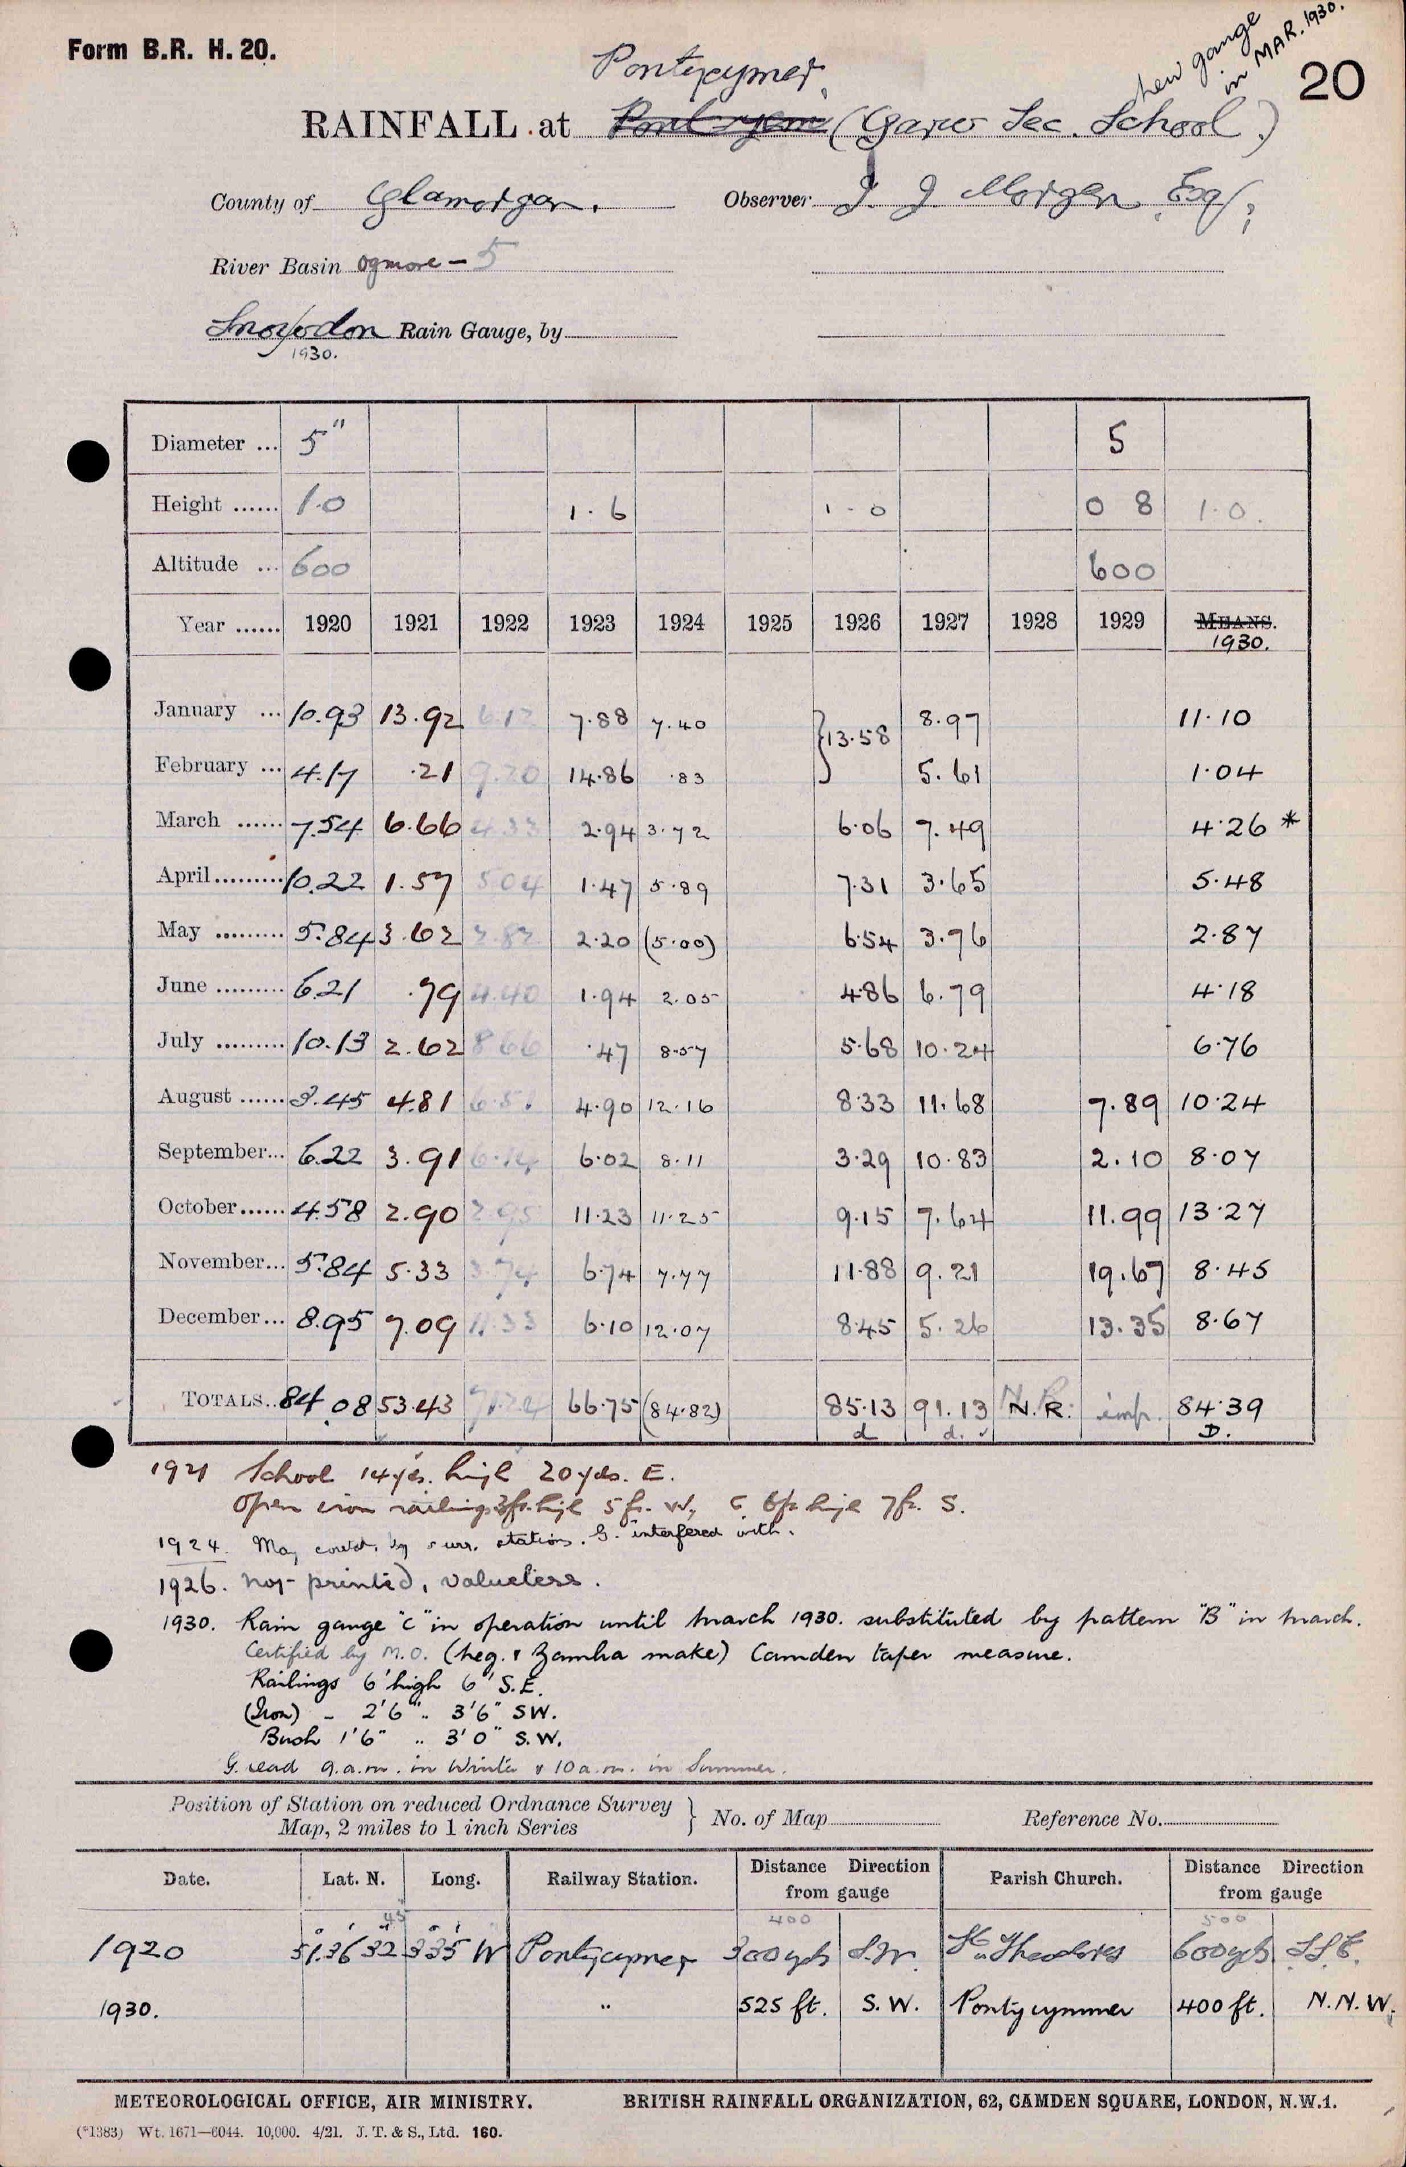 Form B.R. H. 20.
new gauge
in MAR. 1930.
20
Pontycymer,
RAINFALL at (Garw Sec. School)
County of Glamorgan. Observer J. J. Morgan, Esq,
River Basin Ogmore - 5
Snowdon Rain Gauge, by
1930.
Diameter ... 5" 5
Height ...... 1.0 1.6 1-0 0 8 1.0.
Altitude ... 600 600
Year ...... 1920 1921 1922 1923 1924 1925 1926 1927 1928 1929 MEANS.
1930.
January ... 10.93 13.92 6.12 7.88 7.40 } 13.58 8.97 11.10
February ... 4.17 .21 9.20 14.86 .83 5.61 1.04
March ...... 7.54 6.66 4.33 2.94 3.72 6.06 7.49 4.26 *
April ......... 10.22 1.57 5.04 1.47 5.89 7.31 3.65 5.48
May ......... 5.84 3.62 2.20 (5.00) 6.54 3.76 2.87
June ......... 6.21 .79 4.40 1.94 2.05 4.86 6.79 4.18
July ......... 10.13 2.62 8.66 .47 8.57 5.68 10.24 6.76
August ...... 3.45 4.81 4.90 12.16 8.33 11.68 7.89 10.24
September... 6.22 3.91 6.02 8.11 3.29 10.83 2.10 8.07
October...... 4.58 2.90 2.95 11.23 11.25 9.15 7.64 11.99 13.27
November... 5.84 5.33 3.74 6.74 7.77 11.88 9.21 19.67 8.45
December... 8.95 7.09 11.33 6.10 12.07 8.45 5.26 13.35 8.67
TOTALS.. 84.08 53.43 66.75 (84.82) 85.13 91.13 N.R. imp. 84.39
d d. D.
1921 School 14 yds. high 20 yds. E.
Open iron railings 3 ft. high 5 ft. W, 6 ft. high 7 ft. S.
1924. May by surr. stations. G. interfered with.
1926. not printed, valueless.
1930. Rain gauge "C" in operation until March 1930. substituted by pattern "B" in March.
Certified by M.O. (Neg. & Zambra make) Camden taper measure.
Railings 6' high 6' S.E.
(Iron) - 2'6" .. 3'6" SW.
Bush 1'6" .. 3'0" S.W.
G. read 9.a.m. in Winter & 10 a.m. in Summer.
Position of Station on reduced Ordnance Survey
Map, 2 miles to 1 inch Series } No. of Map Reference No.
Date. Lat. N. Long. Railway Station. Distance Direction from gauge Parish Church. Distance Direction from gauge
45 400 500
1920 51° 36' 32" 3° 35' W Pontycymer 300 yds S.W. St. Theodores 600 yds S.S.E.
1930. " 525 ft. S.W. Pontycymmer 400 ft. N.N.W.
METEOROLOGICAL OFFICE, AIR MINISTRY. BRITISH RAINFALL ORGANIZATION, 62, CAMDEN SQUARE, LONDON, N.W.1.
(*1383) Wt. 1671—6044. 10,000. 4/21. J. T. & S., Ltd. 160.